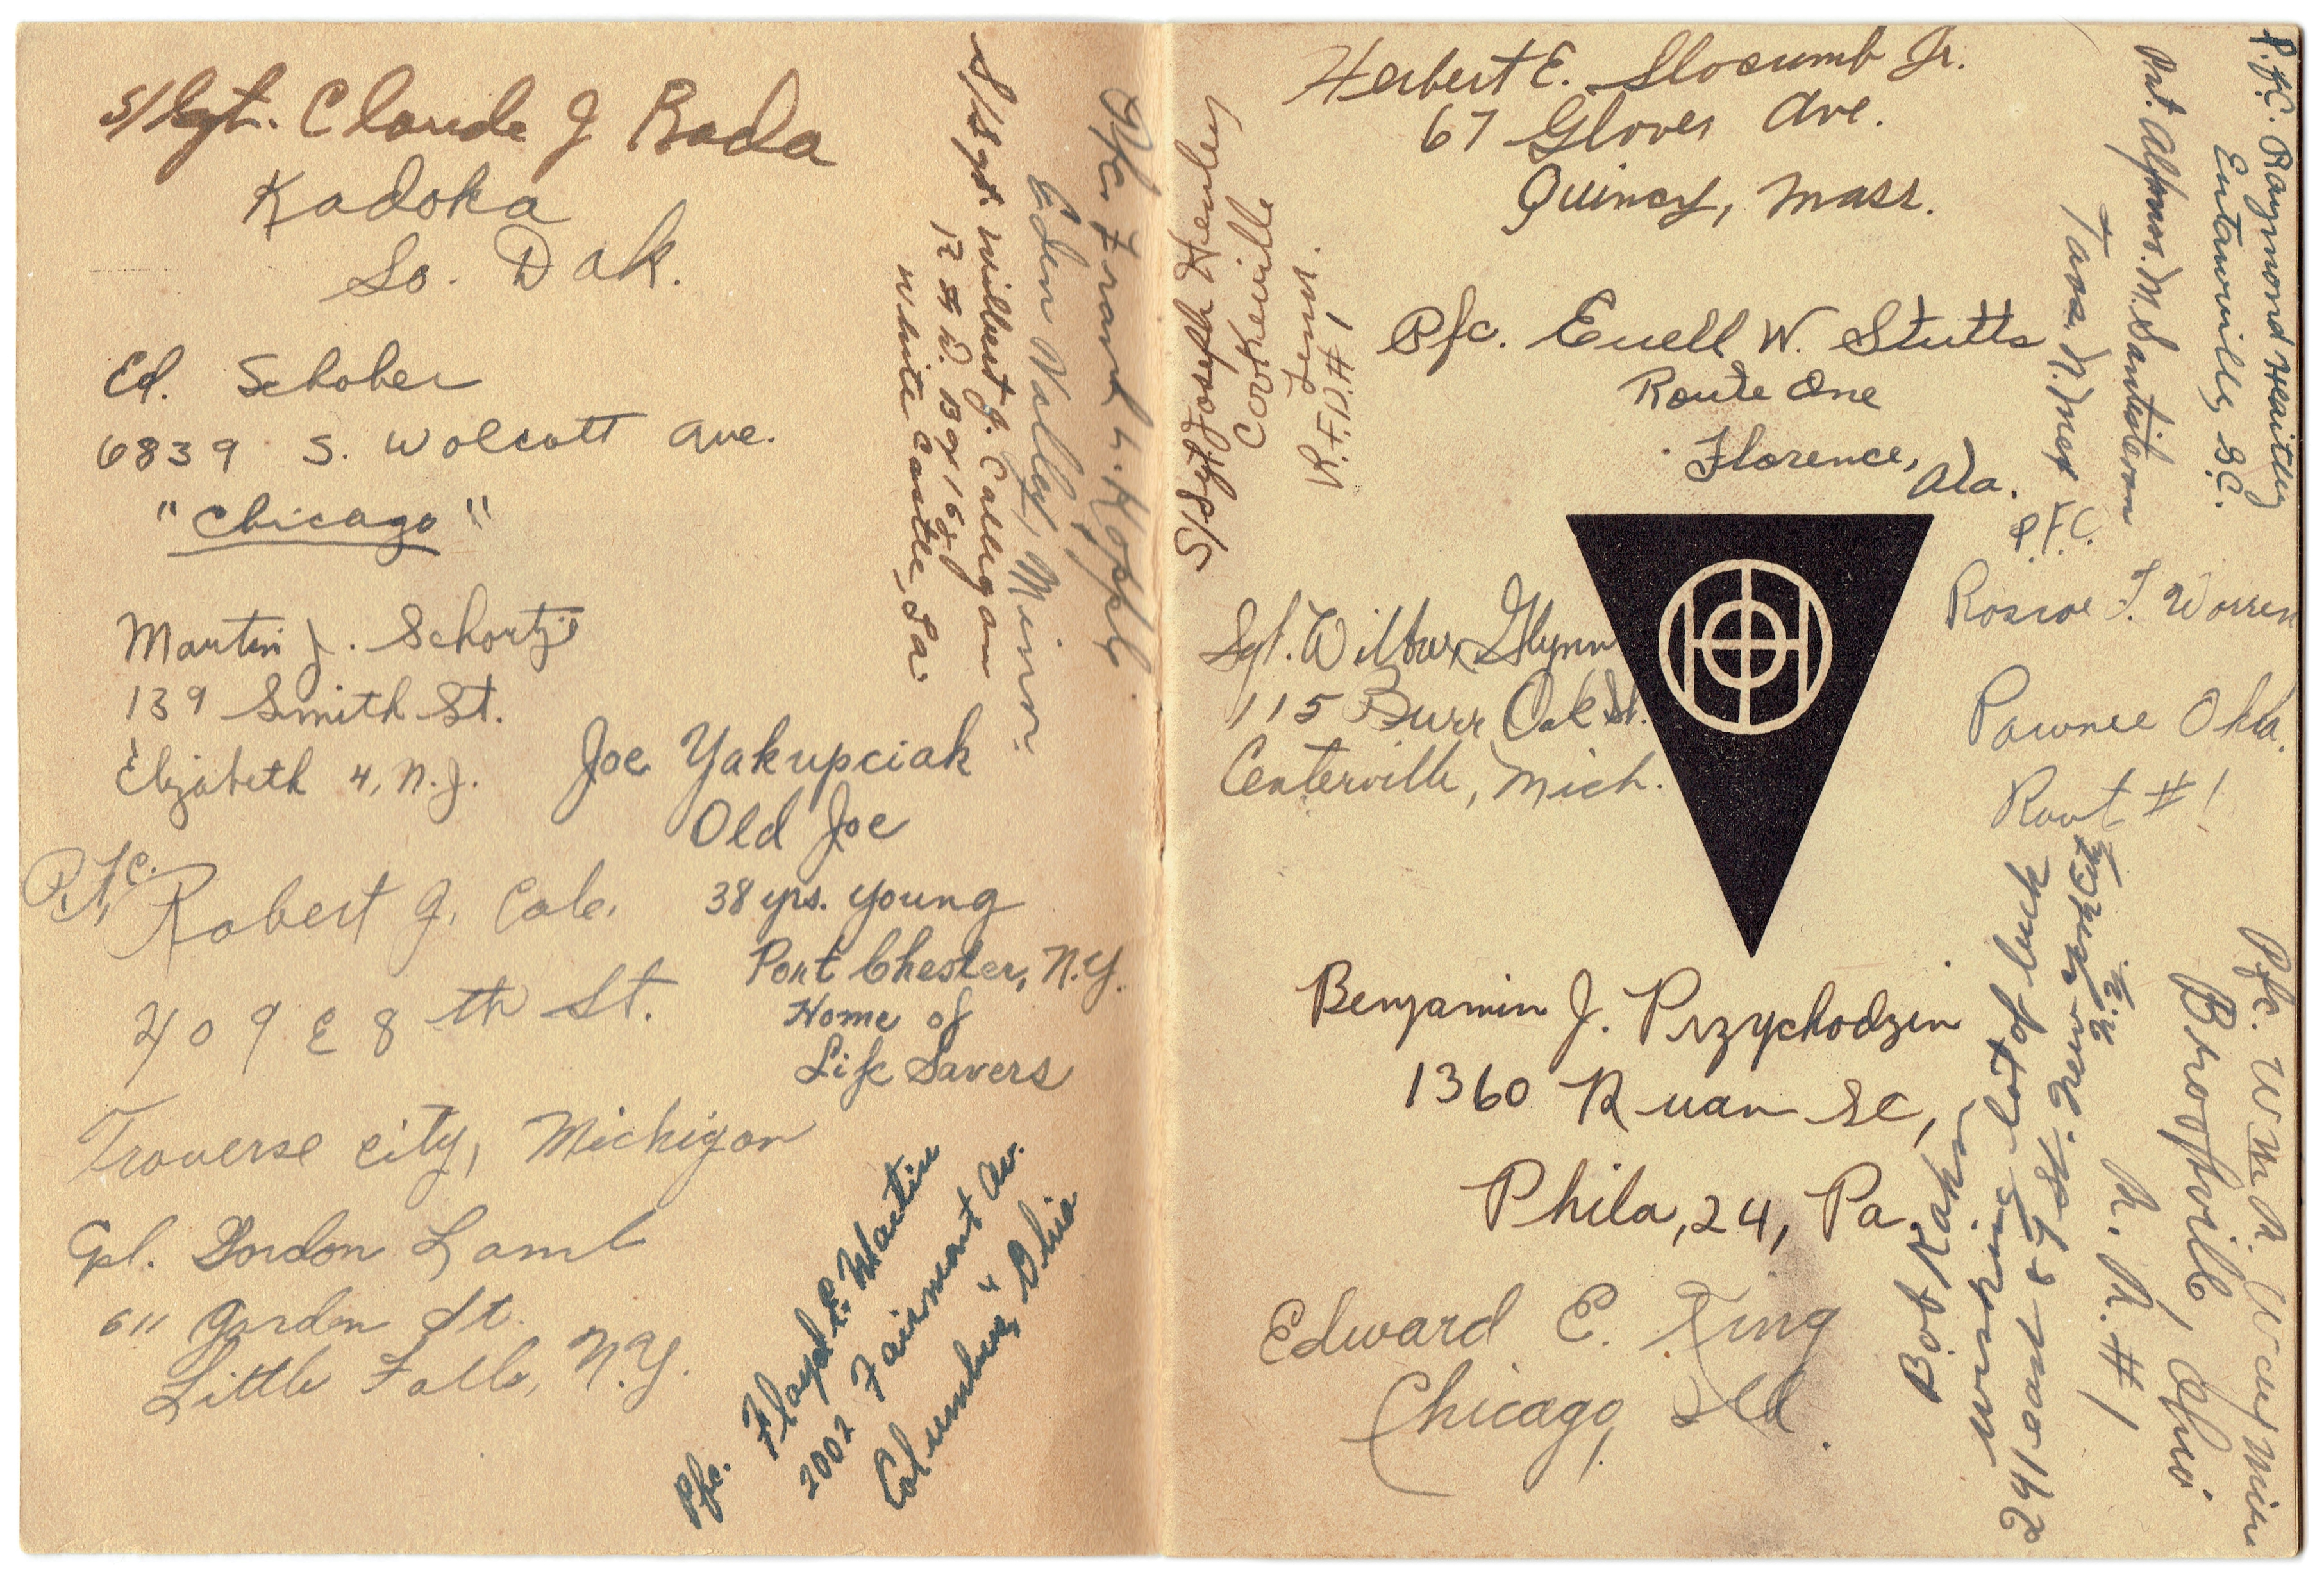 S/Sgt. Claude J Rada
Kadoka
So. Dak.
Ed. Schober
6839 S. Wolcott Ave.
"Chicago"
Martin J. Schortje
139 Smith St.
Elizabeth 4, N.J.
Joe Yakupciak
Old Joe
38 yrs. young
Port Chester, N.Y.
Home of
Life Savers
P.F.C. Robert J. Cole.
409 E 8th St.
Traverse City, Michigan
Cpl. Gordon Lamb
611 Garden St.
Little Falls, N.Y.
Pfc. Floyd E. Martin
2002 Fairmont Av.
Columbus, 4 Ohio
Pfc. Frank H. Kopp
Eden Valley, Minn.
S/Sgt. Wilbert J. Callegan
White Castle, La.
S/Sgt. Joseph Henley
Cookeville
Tenn.
R.F.D.#1
Herbert E. Slocumb Jr.
67 Glover Ave.
Quincy, Mass.
Pfc. Euell W. Stutts
Route One
Florence, Ala.
Sgt. Wilbur Glynn
115 Burr Oak St.
Centerville, Mich.
Benjamin J. Przychodzin
1360 Ruan St,
Phila, 24, Pa.
Edward E. King
Chicago, Ill.
P.F.C. Raymond
Eutawville, S.C.
Pvt.
Taos, N. Mex
P.F.C.
Roscoe F. Warren
Pawnee Okla.
Rout #1
Bob Kahn
lot of luck
Pfc. Wm R.
R.R. #1